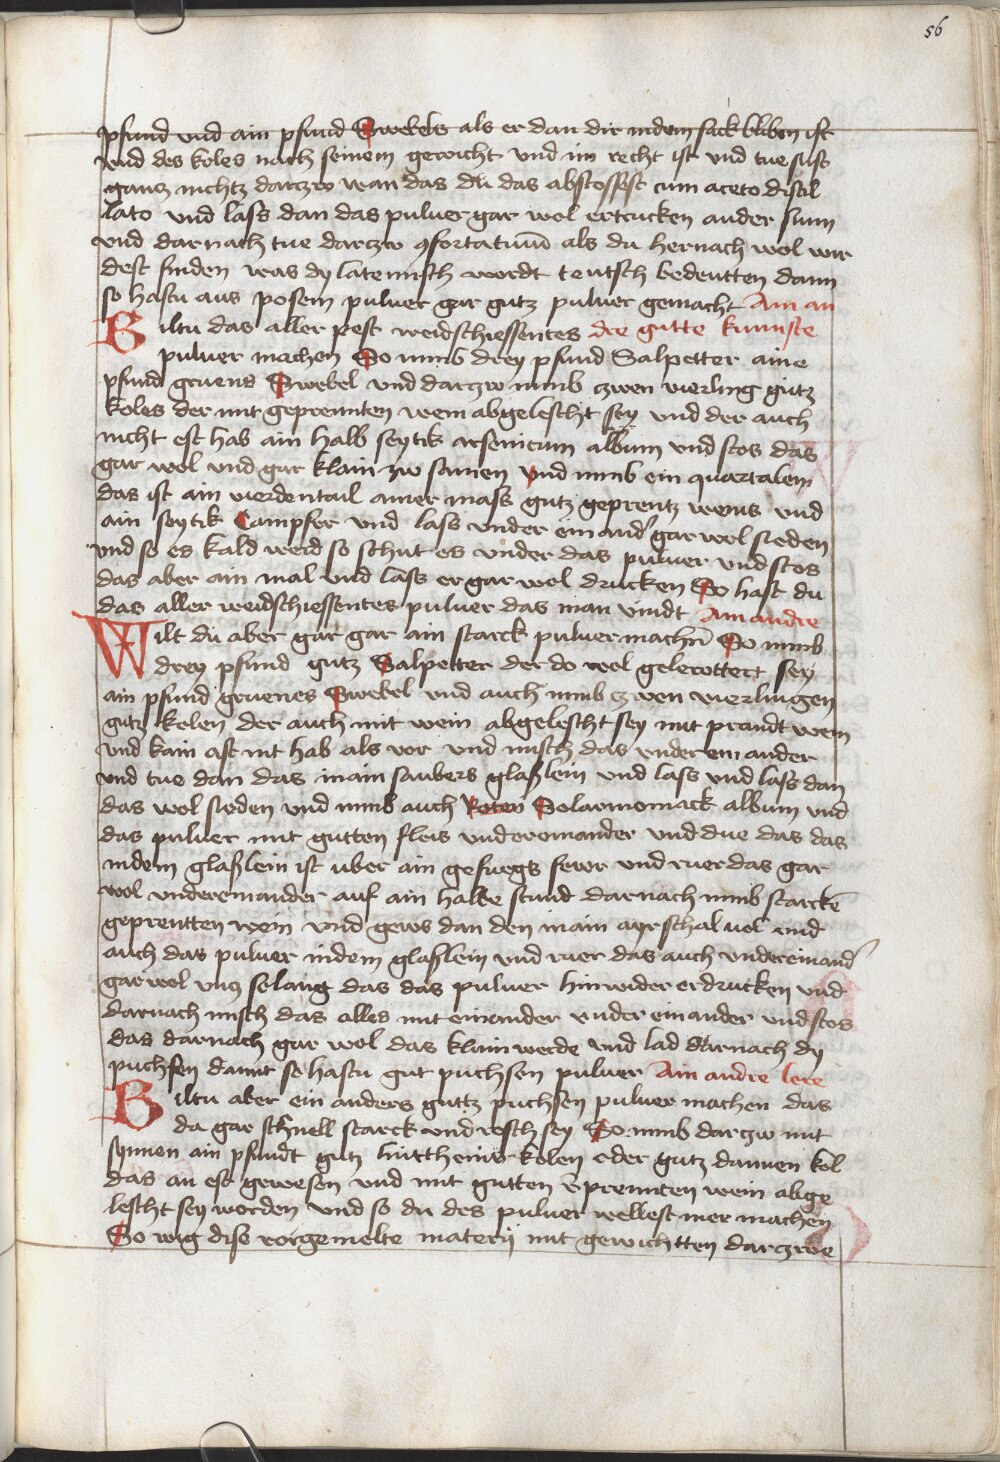 56
pfund vnd ain pfund Swebels als er dan dir indem sack bliben ist
vnd des koles nach seinem gewicht vnd im recht ist vnd tue sust
gantz nichtz darczw wan das du das abstossest cum aceto distil
lato vnd lass dan das puluer gar wol ertrucken ander sunn
vnd darnach tue darczw 9fortatiuum als du hernach wol wir
dest finden was dy lateinisch wordt teutsch bedeutten dann
so hastu aus posem puluer gar gutz puluer gemacht Ain an
Wiltu das aller pest weidschiessentes dre gutte kunnste
puluer machen So nimb drey pfund Salpetter aine
pfund gruens Swebel vnd darczw nimb czwen vierling gutz
koles der mit geprennten wein abgelescht sey vnd der auch
nicht est hab ain halb seytik arsenicum album vnd stos das
gar wol vnd gar klain zw samen vnd nimb ein quartalem
das ist ain vierdentail ainer mass gutz geprentz weins vnd
ain seytik Campfer vnd lass vnder einander gar wol sieden
vnd so es kald werd so schut es vnder das puluer vnd stos
das aber ain mal vnd lass er gar wol drucken So hast du
das aller weidschiessentes puluer das man vindt Ain andre
Wilt du aber gar gar ain starck puluer machen So nimb
drey pfund gutz Salpetter der do wol gelewttert sey
ain pfund gruenes Swebel vnd auch nimb czwen vierlingen
gutz kolen der auch mit wein abgelescht sey mit prandt wein
vnd kain ast nit hab als vor vnd misch das vnder ein ander
vnd tue dan das inain saubers glaßlein vnd lass vnd lass dan
das wol sieden vnd nimb auch Roten Solarmoniack album vnd
das puluer mit gutten fleis vndereinander vnd due das das
indem glaßlein ist vber ain gefuegs fewr vnd ruer das gar
wol vndereinander auf ain halbe stund darnach nimb starcken
geprentten wein vnd gews dan den inain ayrschal vol vnd
auch das puluer indem glaßlein vnd ruer das auch vndereinand
gar wol vnz solang das das puluer hinwider erdrucken vnd
darnach misch das alles mit einander vnder einander vnd stos
das darnach gar wol das klain werde vnd lad darnach dy
puchsen damit so hastu gut puchsen puluer Ain andre lere
Wiltu aber ein anders guttz puchsen puluer machen das
da gar schnell starck vnd rosch sey So nimb darczw mit
synnen ain pfundt gutz kolen oder gutz dannen kol
das an est gewesen vnd mit gutten geprennten wein abge
lescht sey worden vnd so du des puluer wellest mer machen
So wig dise vorgemelte materij mit gewichtten darczwe